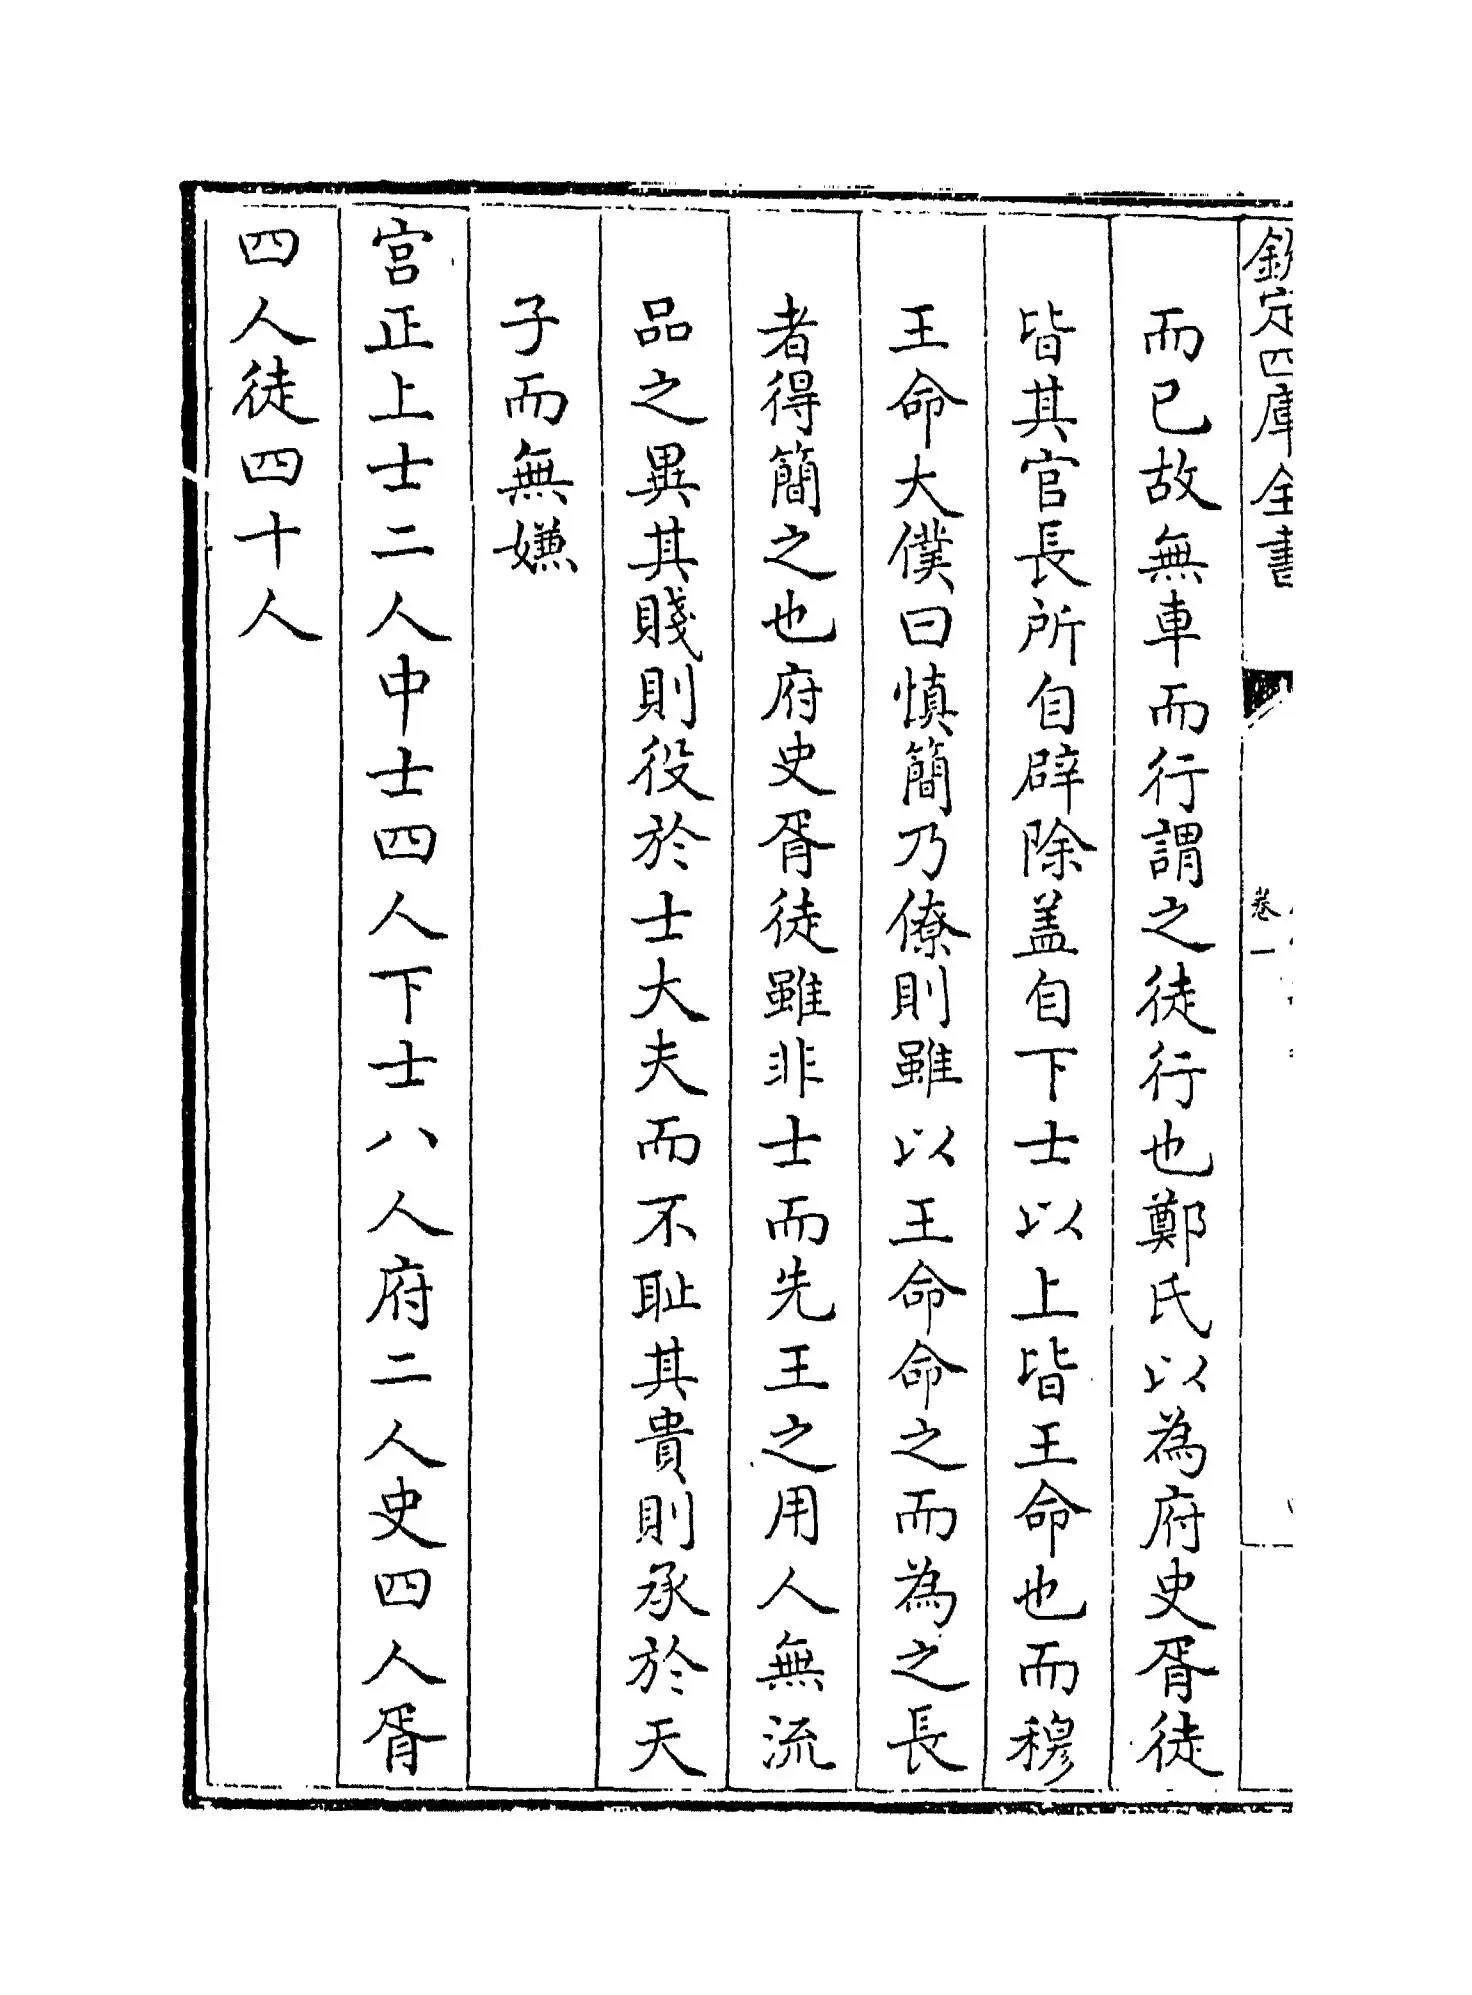 欽定四庫全書
卷一
而已故無車而行謂之徒行也鄭氏以為府史胥徒
皆其官長所自辟除盖自下士以上皆王命也而穆
王命大僕曰慎簡乃僚則雖以王命命之而為之長
者得簡之也府史胥徒雖非士而先王之用人無流
品之異其賤則役於士大夫而不耻其貴則承於天
子而無嫌
宫正上士二人中士四人下士八人府二人史四人胥
四人徒四十人